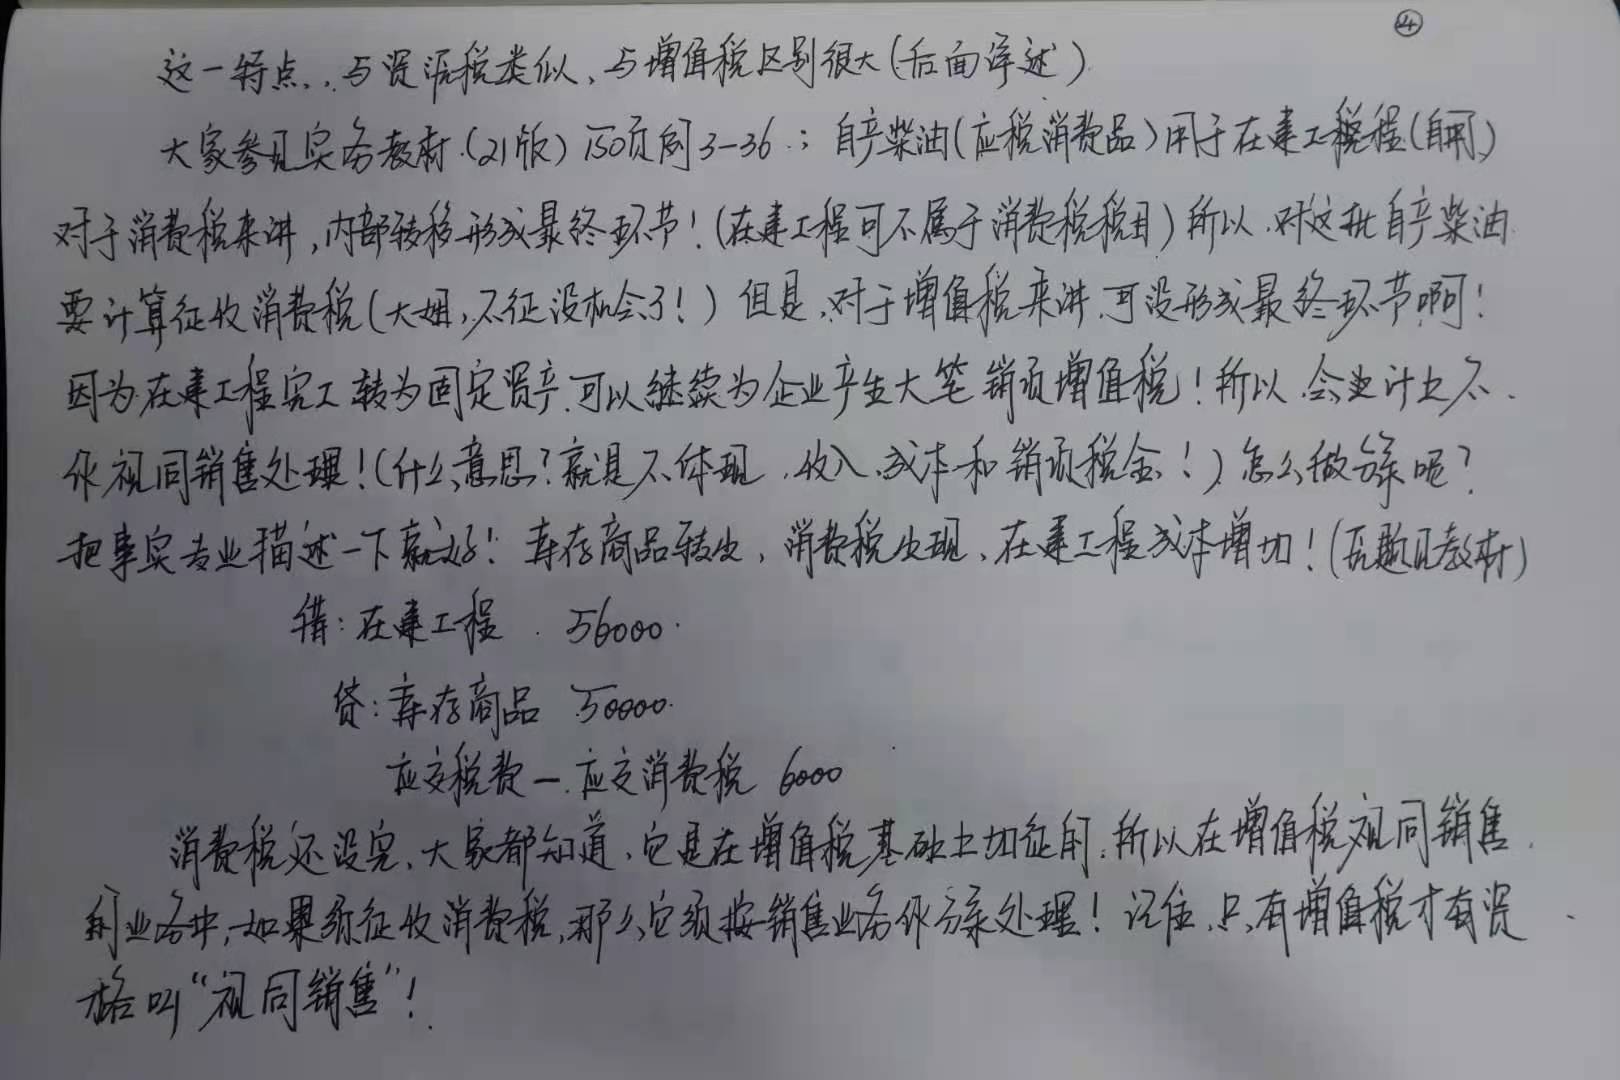 ④
这一特点，与资源税类似，与增值税区别很大（后面详述）
大家参见实务教材（21版）150页例3-36；自产柴油（应税消费品）用于在建工程（自用）
对于消费税来讲，内部转移形成最终环节！（在建工程可不属于消费税税目）所以，对这批自产柴油
要计算征收消费税（大姐，不征没机会了！）但是，对于增值税来讲，可没形成最终环节啊！
因为在建工程完工转为固定资产，可以继续为企业产生大笔销项增值税！所以，会计上不
作视同销售处理！（什么意思？就是不体现，收入、成本和销项税金！）怎么做分录呢？
把事实专业描述一下就好！库存商品转出，消费税出现，在建工程成本增加！（原题见教材）
借：在建工程 56000
贷：库存商品 50000
应交税费—应交消费税 6000
消费税还没完，大家都知道，它是在增值税基础上加征的，所以在增值税视同销售
业务中，如果须征收消费税，那么它须按销售业务作分录处理！记住，只有增值税才有资
格叫“视同销售”！